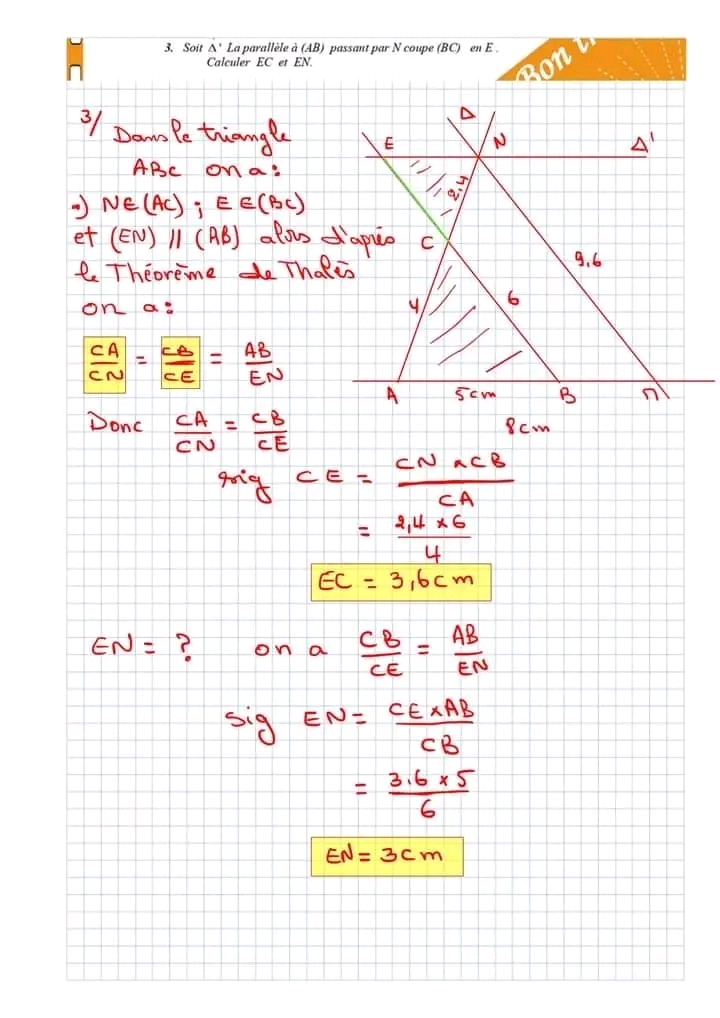 3. Soit Δ' La parallèle à (AB) passant par N coupe (BC) en E .
Calculer EC et EN.
Bon tr
3/ Dans le triangle
ABC on a:
→) N∈(AC) ; E∈(BC)
et (EN) // (AB) alors d'après
le Théorème de Thalès
on a:
CA/CN = CB/CE = AB/EN
Donc CA/CN = CB/CE
sig CE = CN×CB/CA
= 2,4 × 6/4
EC = 3,6cm
EN = ? on a CB/CE = AB/EN
sig EN = CE×AB/CB
= 3.6 × 5/6
EN = 3cm
Δ
E
N
Δ'
2,4
C
9,6
4
6
A
5cm
B
M
8cm